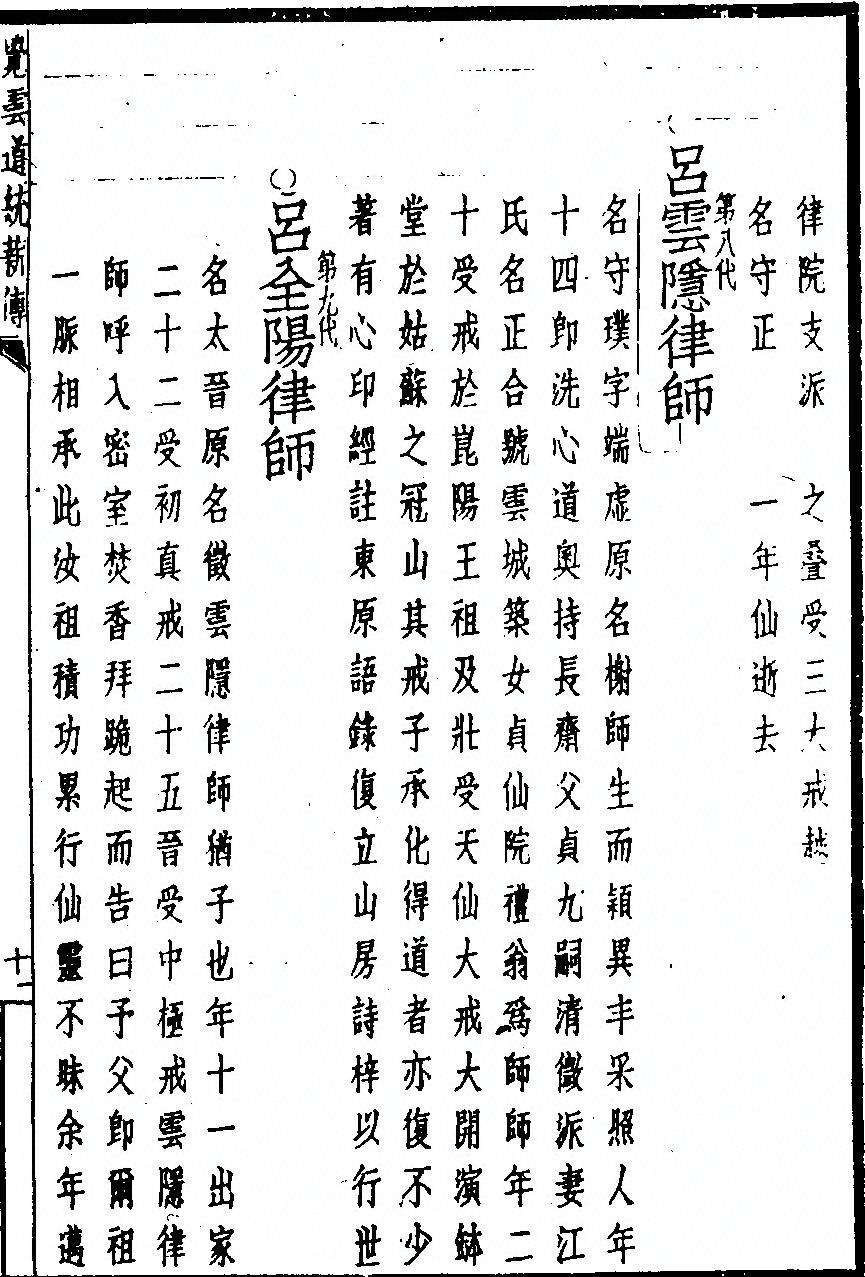 律院支派 之叠受三大戒越
名守正 一年仙逝去
第八代
呂雲隱律師
名守璞字端虛原名榭師生而穎異丰采照人年
十四即洗心道奧持長齋父貞九嗣清微派妻江
氏名正合號雲城築女貞仙院禮翁爲師師年二
十受戒於崑陽王祖及壯受天仙大戒大開演鉢
堂於姑蘇之冠山其戒子承化得道者亦復不少
著有心印經註東原語錄復立山房詩梓以行世
第九代
呂全陽律師
名太晉原名徵雲隱律師猶子也年十一出家
二十二受初真戒二十五晉受中極戒雲隱律
師呼入密室焚香拜跪起而告曰予父卽爾祖
一脈相承此汝祖積功累行仙靈不昧余年邁
覓雲道統薪傳
十一